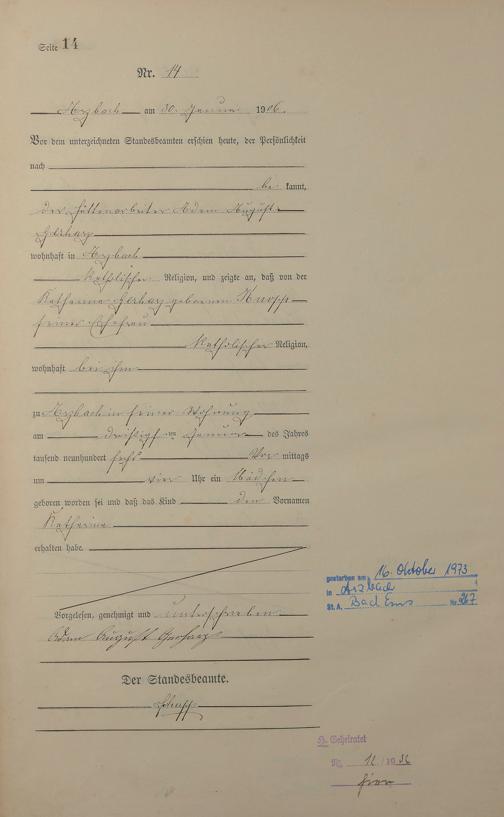 Seite 14
Nr. 14
Arzbach am 30. Januar 1906.
Vor dem unterzeichneten Standesbeamten erschien heute, der Persönlichkeit
nach
be kannt,
der Hüttenarbeiter Adam August
Gerharz
wohnhaft in Arzbach
katholischer Religion, und zeigte an, daß von der
Katharina Gerharz geborenen
seiner Ehefrau
katholischer Religion,
wohnhaft bei ihm
zu Arzbach in seiner Wohnung
am dreißigsten Januar des Jahres
tausend neunhundert sechs Vor mittags
um vier Uhr ein Mädchen
geboren worden sei und daß das Kind den Vornamen
Katharina
erhalten habe.
Vorgelesen, genehmigt und unterschrieben
Adam August Gerharz
Der Standesbeamte.
gestorben am 16. Oktober 1973
in Arzbach
St. A. Bad Ems Nr. 267
Geheiratet
Nr. 12/1936
hier